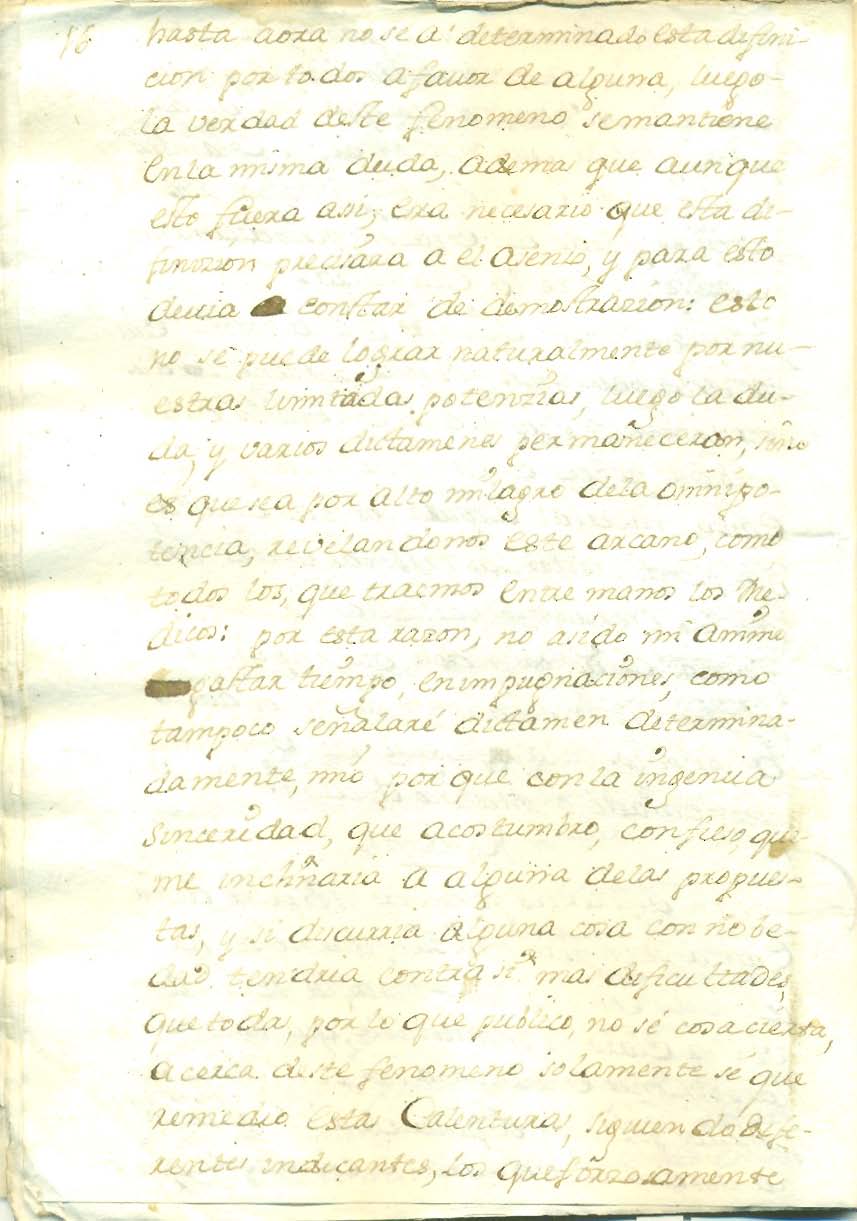 16
hasta aora no se a determinado esta difini-
cion por todos a favor de alguna, luego
la verdad deste fenomeno se mantiene
en la misma duda, ademas que aunque
esto fuera assi, era necesario que esta di-
finizion precisara a el asenso, y para esto
devia constar de demostrazion: esto
no se puede lograr naturalmente por nu-
estras limitadas potenzias, luego la du-
da, y varios dictamenes permaneceran, sino
es que sea por alto milagro de la omnipo-
tencia, revelandonos este arcano, como
todos los, que traemos entre manos los Me-
dicos: por esta razon, no a sido mi animo
gastar tiempo, en impugnaciones, como
tampoco señalaré dictamen determina-
damente, mio por que con la ingenua
sinceridad, que acostumbro, confieso, que
me inclinaria a alguna de las propues-
tas, y si discurria alguna cosa con nobe-
dad tendria contra si mas dificultades,
que todas, por lo que publico, no sé cosa cierta,
acerca deste fenomeno solamente sé que
remedio estas Calenturas, siguiendo dife-
rentes indicantes, los que forzosamente